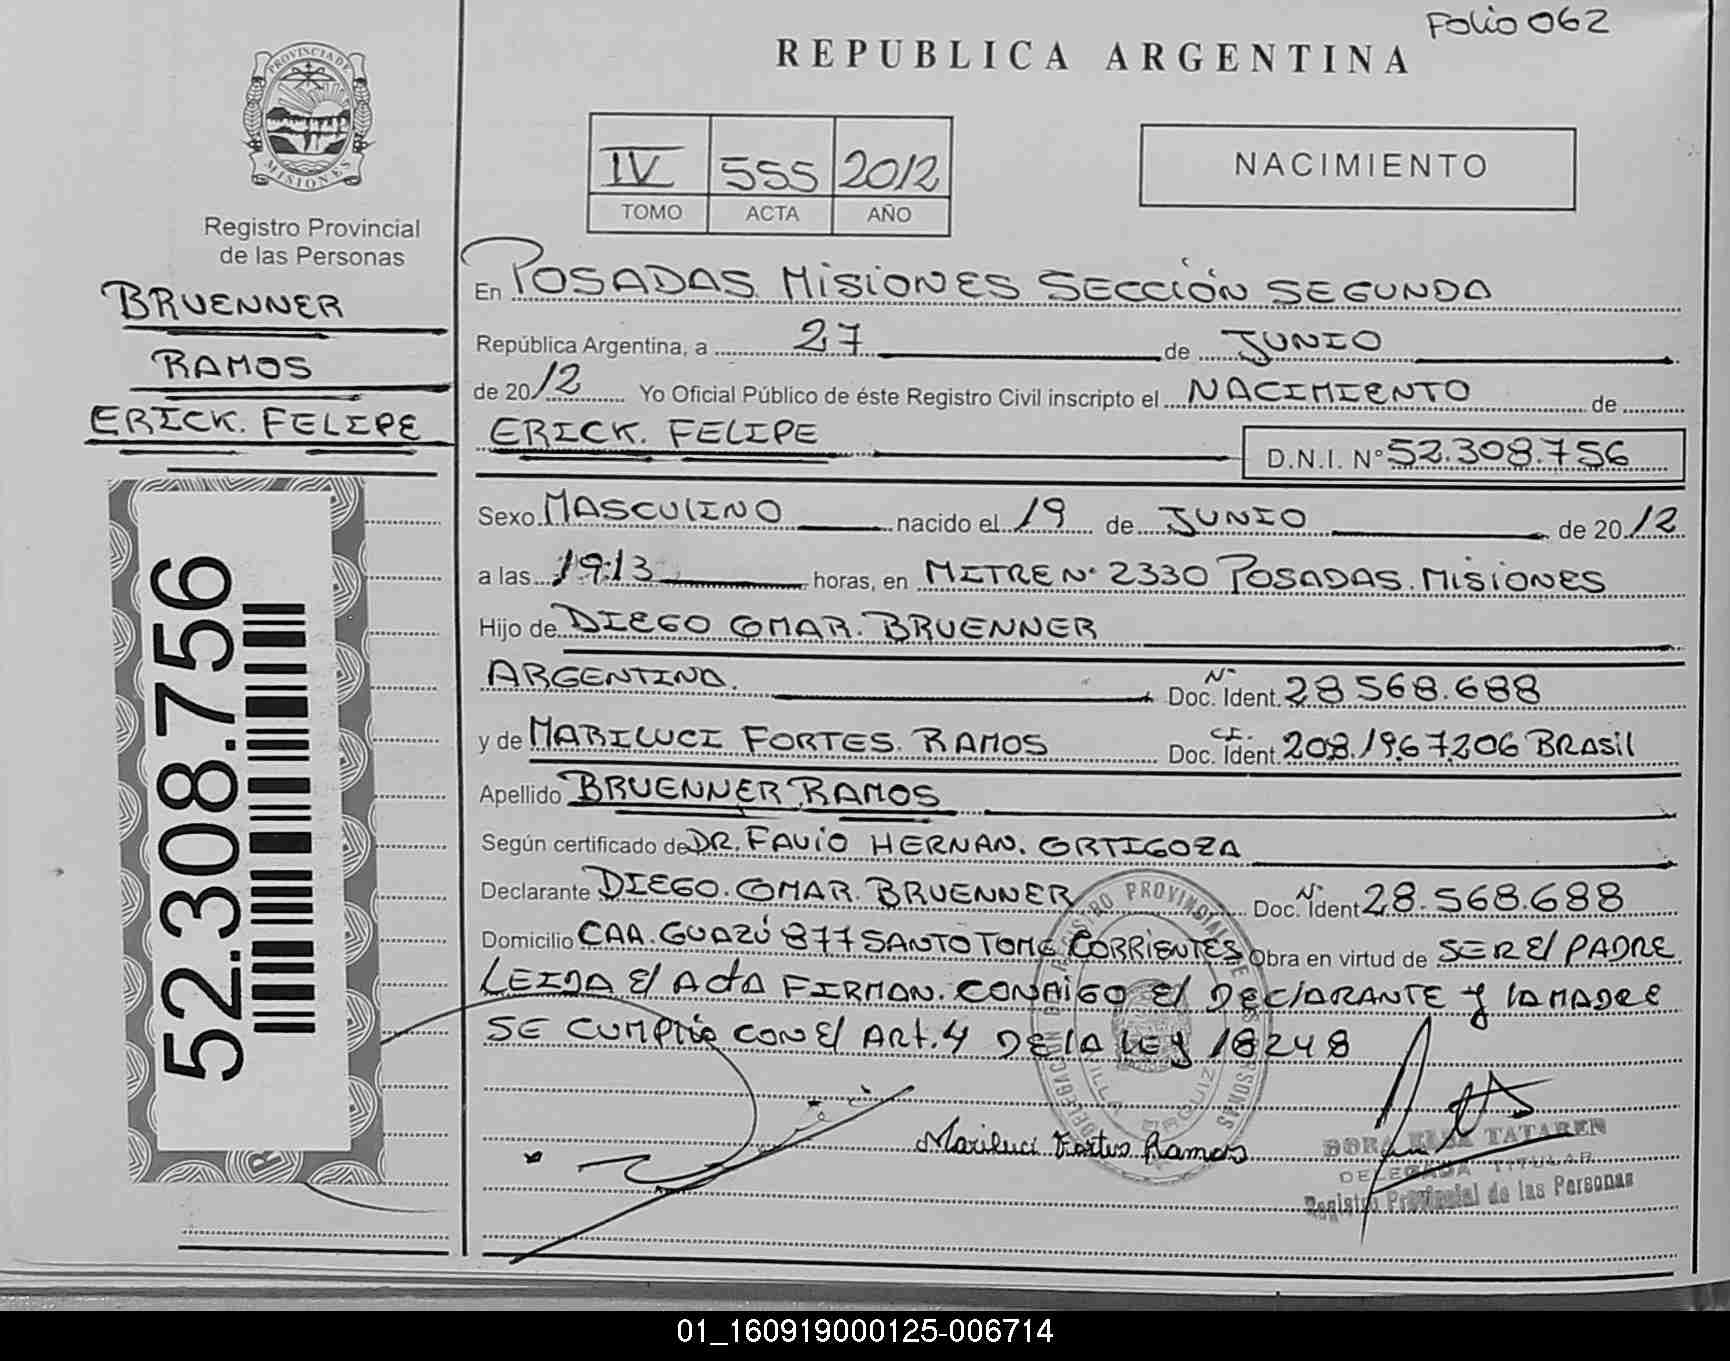 Folio 062
REPUBLICA ARGENTINA
PROVINCIA DE MISIONES
Registro Provincial
de las Personas
IV 555 2012
TOMO ACTA AÑO
NACIMIENTO
BRUENNER
RAMOS
ERICK. FELIPE
52.308.756
En POSADAS. MISIONES SECCIÓN SEGUNDA
República Argentina, a 27 de JUNIO
de 2012 Yo Oficial Público de éste Registro Civil inscripto el NACIMIENTO de
ERICK. FELIPE D.N.I. N° 52.308.756
Sexo MASCULINO nacido el 19 de JUNIO de 2012
a las 19:13 horas, en MITRE N° 2330 POSADAS. MISIONES
Hijo de DIEGO OMAR. BRUENNER
ARGENTINO. N° Doc. Ident. 28.568.688
y de MARILUCI FORTES. RAMOS C.I. Doc. Ident. 208.1967206 BRASil
Apellido BRUENNER RAMOS
Según certificado de DR. FAVIO HERNAN. ORTIGOZA
Declarante DIEGO. OMAR. BRUENNER N° Doc. Ident 28.568.688
Domicilio CAA. GUAZÚ 877 SANTO TOME CORRIENTES Obra en virtud de SER El PADRE
LEIDA El ActA FIRMAN. CONMIGO El DEClARANTE y lA MADRE
SE CUMPlió CON El ARt. 4 DE lA LEY 18248
Mariluci Fortes Ramos
DORA TATAREN
DELEGADA TITULAR
Registro Provincial de las Personas
01_160919000125-006714